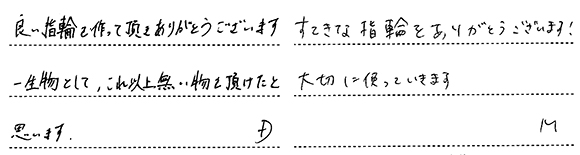 良い指輪を作って頂きありがとうございます
一生物として,これ以上無い物を頂けたと
思います. D
すてきな指輪をありがとうございます!
大切に使っていきます
M